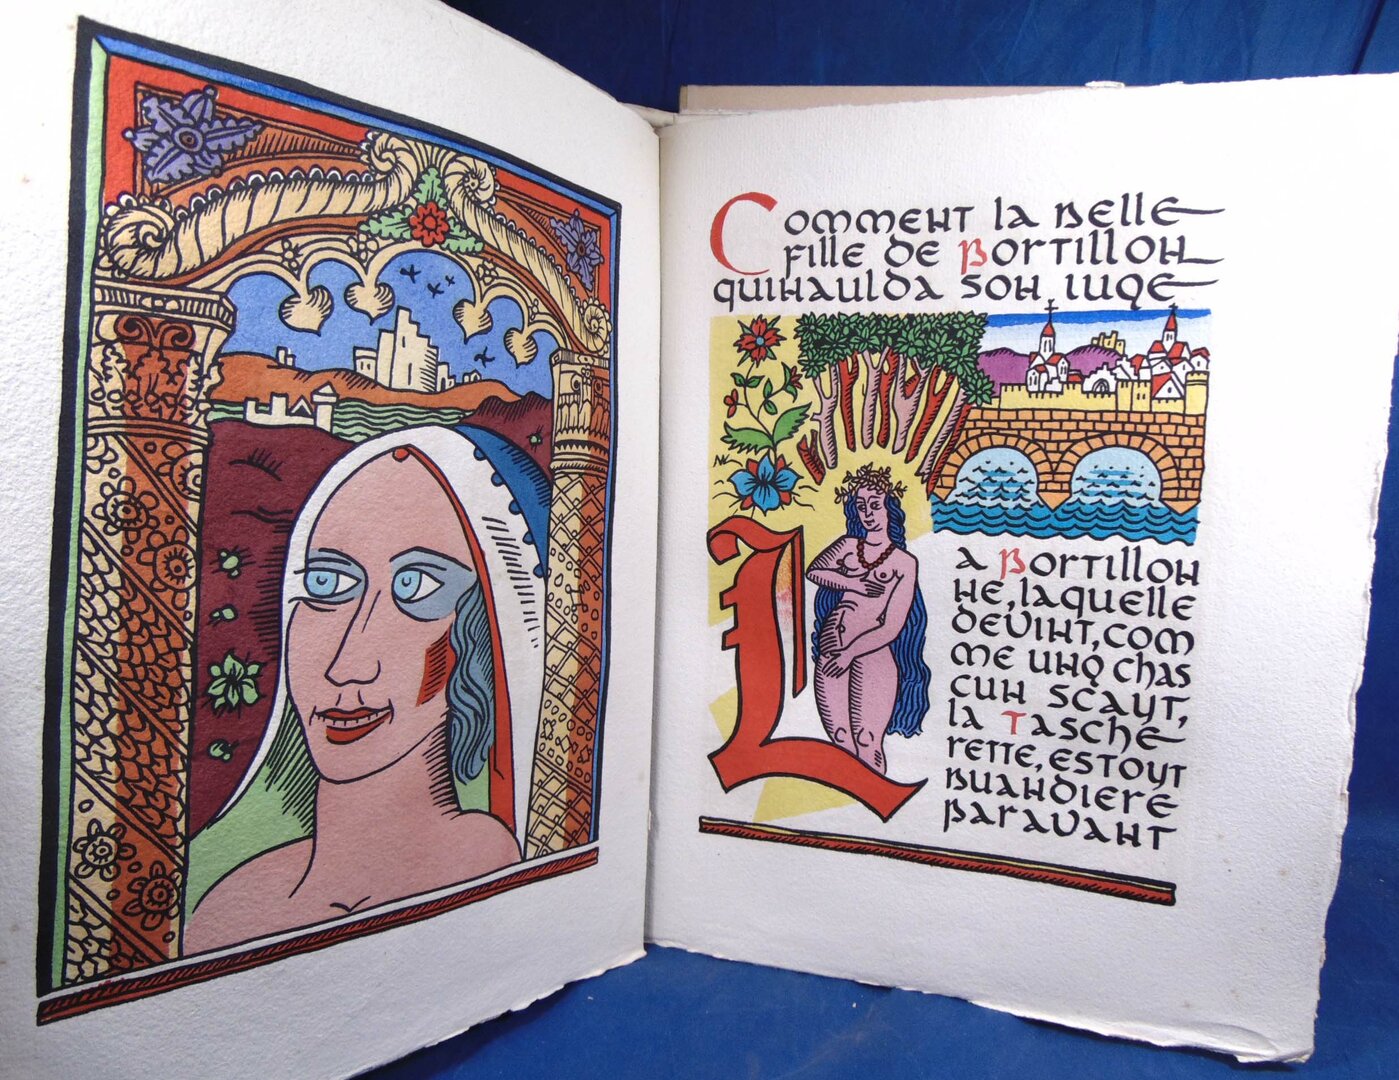 Comment la belle
fille de Portillon
quinaulda son iuge
La Portillon
ne, laquelle
devint, com
me ung chas
cun scayt,
la Tasche
rette, estoyt
buandiere
paravant